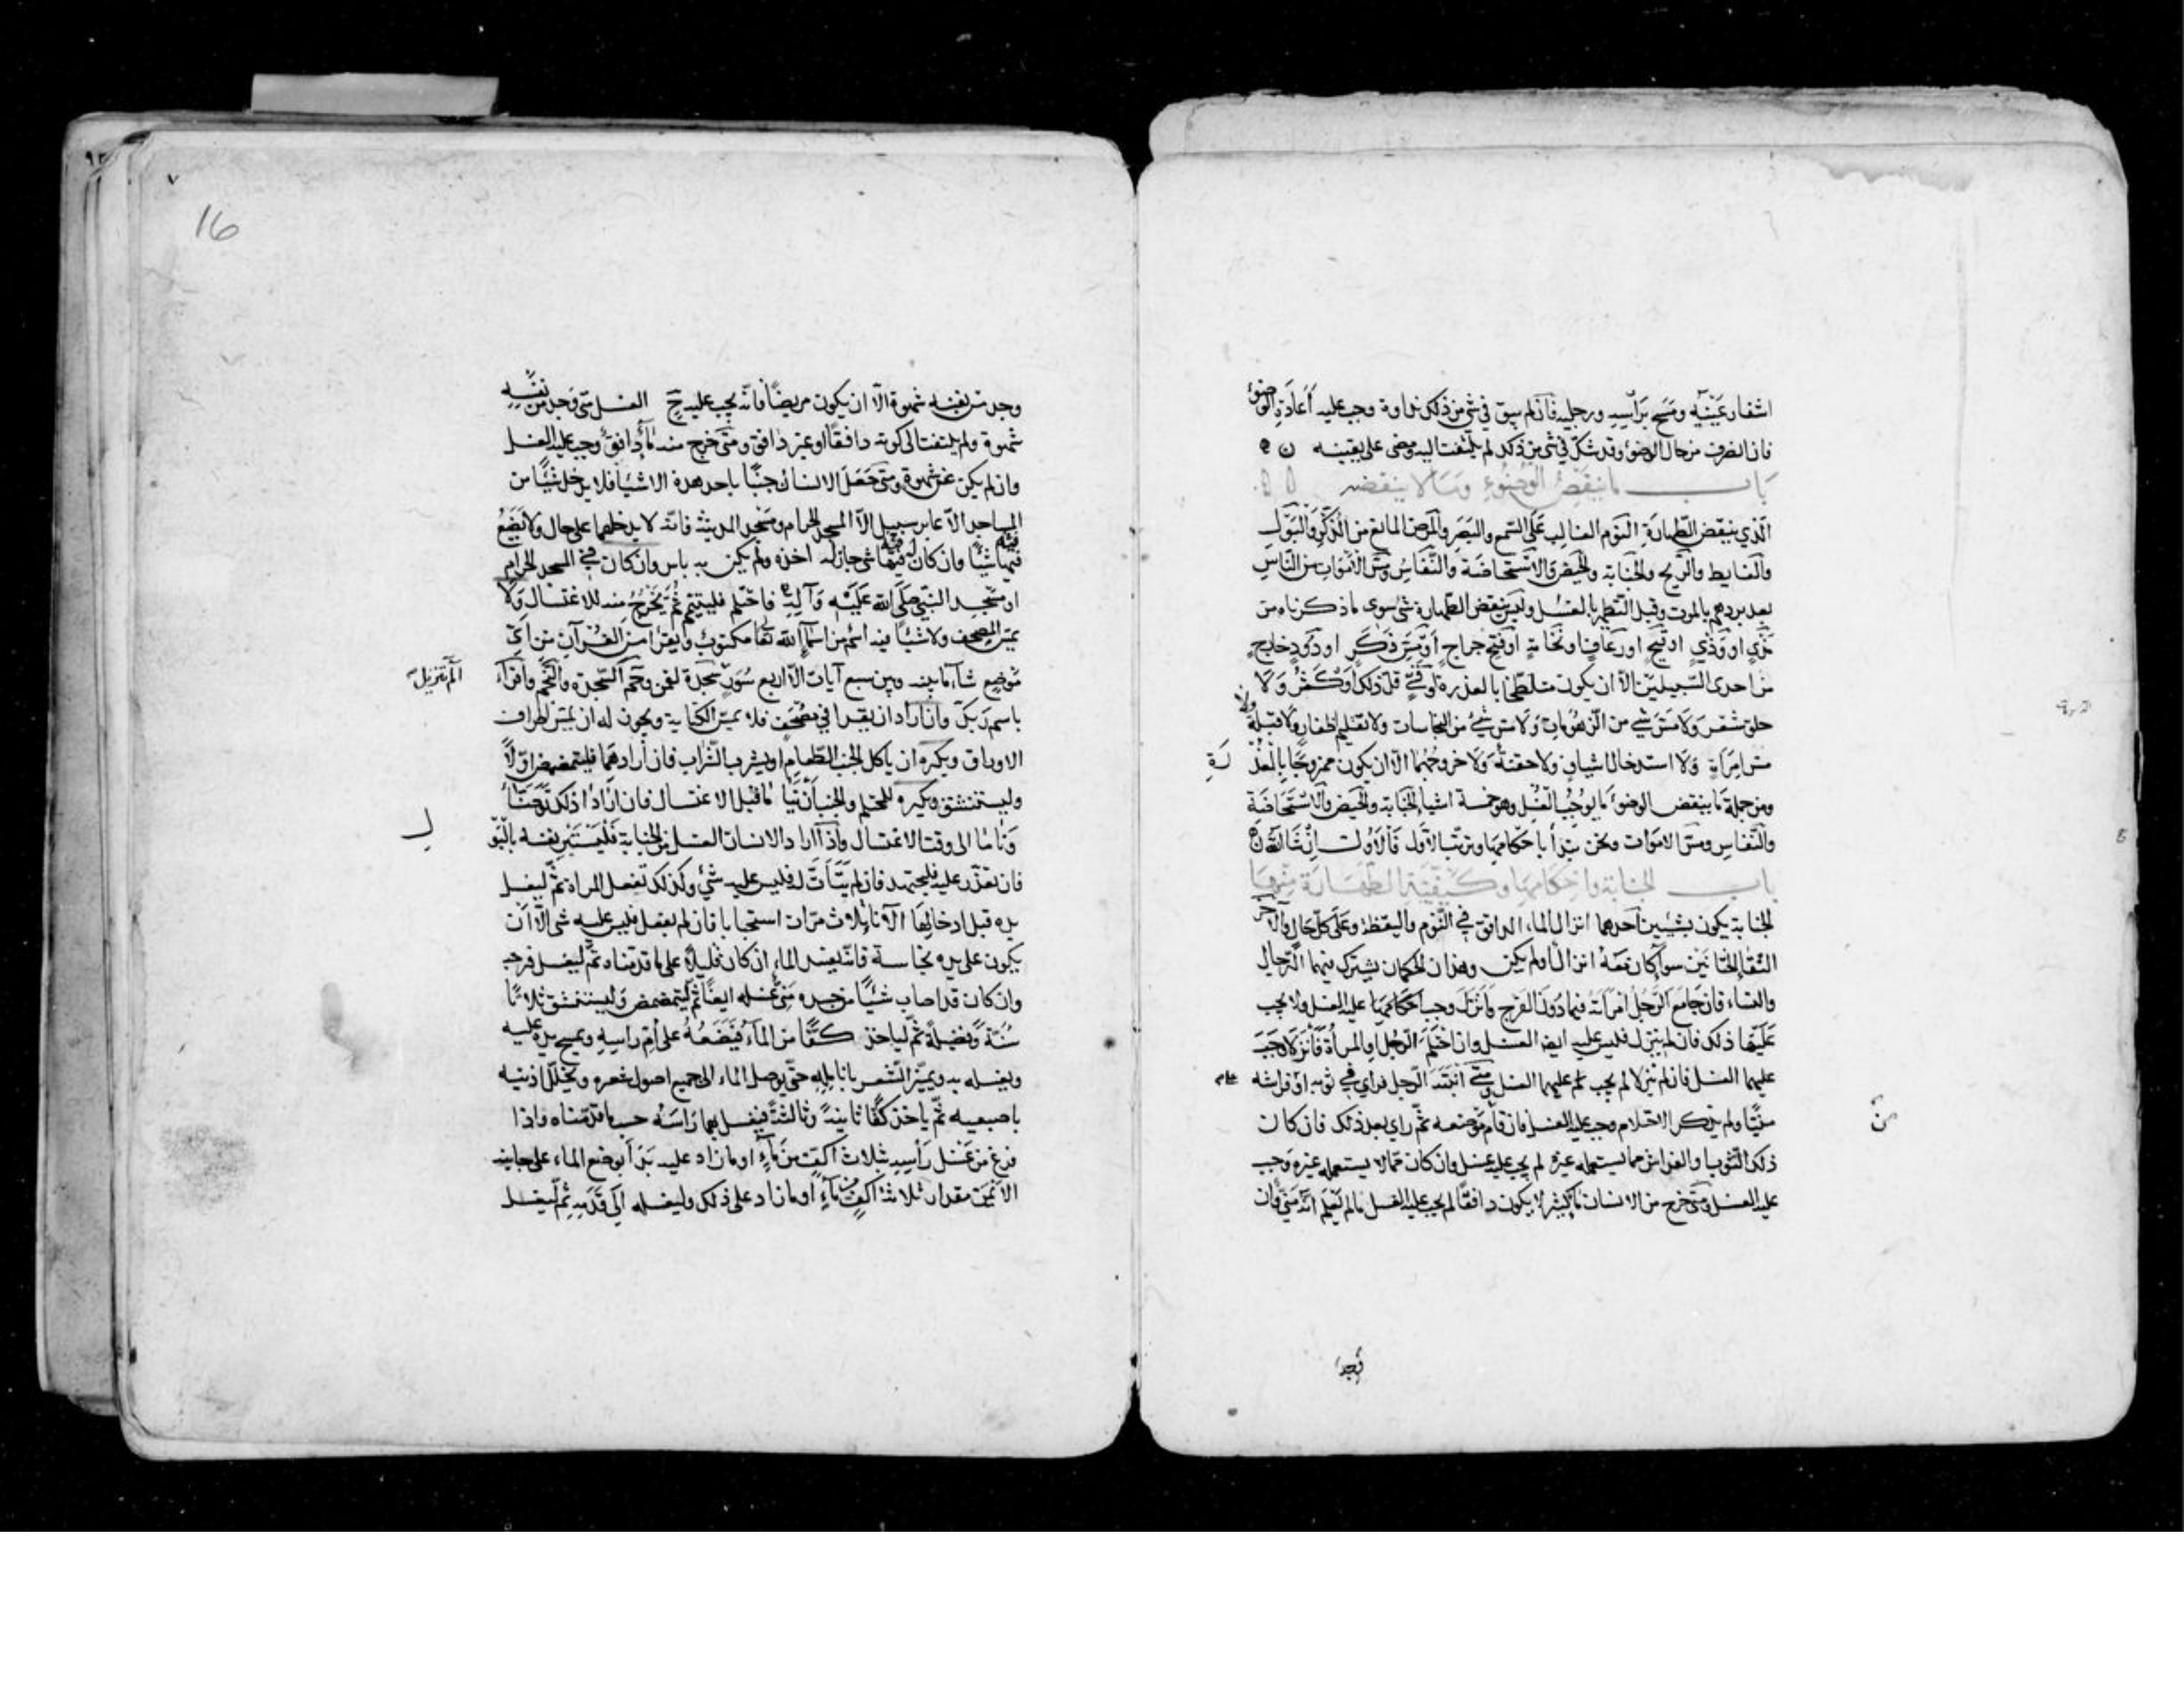 اشفار عَينيه ومَسح برَأسِه ورجليه فان لم يبق في شئ من ذلك نداوة وجب عليه أعادَة الوضوء
فان انصرف من حال الوضوء وقد شكّ في شئ من ذلك لم يلتفت اليه ومضى على يقينه
باب ما ينقض الوضوء وما لا ينقضه
الّذي ينقض الطّهارة النوم الغالب على السّمع والبَصَر والمرض المانع من الذكر والبَول
والغايط والرّيح والجنابة والحيض والاستحاضة والنّفاس ومسّ الاموات من النّاس
بعد بردهم بالموت وقبل التّطهير بالغسل وليس ينقض الطّهارة شئ سوى ما ذكرناه من
مَذْيٍ او وَذْيٍ او قيح او رعاف او نخامة او فتح جراح او مَسّ ذَكَر او دُودٍ خارج
من احدى السّبيلين الاّ ان يكون متلطّخا بالعذرة او قَيْءٍ قلّ ذلك او كثُر وَلا
حلق شعر وَلا مَسّ شئ من الزهومات وَلا مسّ شئ من النجاسات ولا تقليم اظفار ولا قبلة
مس امراةٍ وَلا استدخال اشيافٍ ولا حقنة وَلا خروجُهما الاّ ان يكون ممزوجًا بالعُذْ
رَةِ
ومن جملة ما ينقض الوضوء ما يوجب الغُسل وهو خمسة اشيا الجنابة والحيض والاستحاضة
والنّفاس ومسّ الاموات ونحن نبدأ باحكامها ونرتّب الاوّل فالاوّل ان شا الله
باب الجنابة واحكامها وكيفيّة الطّهارة منها
الجنابة يكون بشيئين احدهما انزال الماء الدافق في النّوم واليقظة وعَلى كلّ حالٍ والاخر
التقا الختانين سوآ كان مَعَهُ انزال اولم يكن وهذان الحكمان يشترك فيهما الرّجال
والنساء فان جامع الرَّجُل امرأتهُ فيما دُونَ الفرج وانزل وجب احكامهما عليه الغسل ولا يجب
عليها ذلك فان لم ينزل فليس عليه ايضا الغسل وان احتلم الرّجُل او المرأة فأنزلا وجبَ
عليهما الغسل فان لم ينزلا لم يجب عليهما الغسل ومتى انتبه الرّجل فرأى في ثوبه او فراشه
منيّا ولم يذكر الاحتلام وجب عليه الغسل فان قام مَوْضعه ثمّ رأى بعد ذلك فان كان
ذلك الثّوب او الفراش مما يستعمله غيره لم يجب عليه غسل وان كان ممّا لا يستعمله غيره وَجب
عليه الغسل ومتى خرج من الانسان ماءٌ كثير لا يكون دافقًا لم يجب عليه الغسل ما لم يَعْلم انّه مَنيّ وان
وجد
وجد من نفسه شهوة الاّ ان يكون مريضاً فانّه يجب عليه ح الغسل متى وَجد من نفسِهِ
شهوة ولم يلتفت الى كونه دافقًا او غير دافق ومتى خرج منه ماءٌ دافق وجب عليه الغسل
وان لم يكن عن شهوة ومتى حَصَلَ الانسان جنبًا باحد هذه الاشيا فلا يدخل شيًا من
المساجد الاّ عابر سبيل الاّ المسجد الحرام ومَسْجد المدينة فانّه لا يدخلهما على حال ولا يَضَعُ
فيها شيئًا وان كان له فيها شئ جاز له اخذه ولم يكن به باس وان كان في المسجد الحرام
او مسجد النبي صلّى الله عَليه وَآله فاحتلم فليتيمّم ثمّ يَخْرُجُ منه للاغتسال وَلا
يمسّ المصحف ولا شيئًا فيه اسم من اسماء الله تعا مكتوب ويقرا من القرآن من اَيّ
مَوضع شاء ما بينه وبين سبع آيات الاّ اربع سُوَرٍ سَجدة لقمن وحم السّجدة والنّجم واقرَأ
الم تنزيل
باسم رَبّك وان اراد ان يقرا في مصْحَف فلا يمسّ الكتابة ويجوز له ان يمسّ اطراف
الاوراق ويكره ان ياكل الجنب الطّعام او يشرب الشّراب فان ارادهمَا فليتمضمض اوّلاً
وليستنشق ويكره للمحتلم والجنب اَنْ يَنَامَا قبل الاغتسال فان ارَادَا ذلك تَوضّئَا
وَنَامَا الى وقت الاغتسال واذا اراد الانسان الغسل من الجنابة فَليَسْتَبْرِ نفسه بالبَوْ
لِ
فان تعذّر عليه فليجتهد فان لم يتَأتّ له فليس عليه شئ وكذلك تفعل المراة ثمّ ليغسل
يده قبل ادخالها الآناء ثلاث مرّات استحبابا فان لم يفعل فليس عليه شى الاّ اَن
يكون على يده نجاسة فانّه يفسد الماء ان كان قليلاً على ما قدمناه ثمّ ليغسل فرجه
وان كان قد اصاب شيئًا من جسده مَنيٌّ غسله ايضًا ثمّ ليتمضمض وَليستنشق ثلاثًا
سُنّةً وَفضيلةً ثمّ لياخذ كفًّا من الماء فيَضَعُهُ على اُمّ راسِهِ ويمسح يده عليه
ويغسله به ويميّز الشّعر بانامله حتّى يوصل الماء الى جميع اصول شعره ويخلّل اذنيه
باصبعيه ثمّ ياخذ كفًّا ثانيةً وثالثةً فيغسل بهما رَاسَهُ حسب ما قدّمناه واذا
فرغ من غسل رَأسه بثلاث اكفّ من مآءٍ او ما زاد عليه بَدَأ بوضع الماء على جانبه
الايمَن مقدار ثلاث اكفٍ من مآءٍ او ما زاد على ذلك وليغسله الى قدَمِه ثمّ ليغسل
16